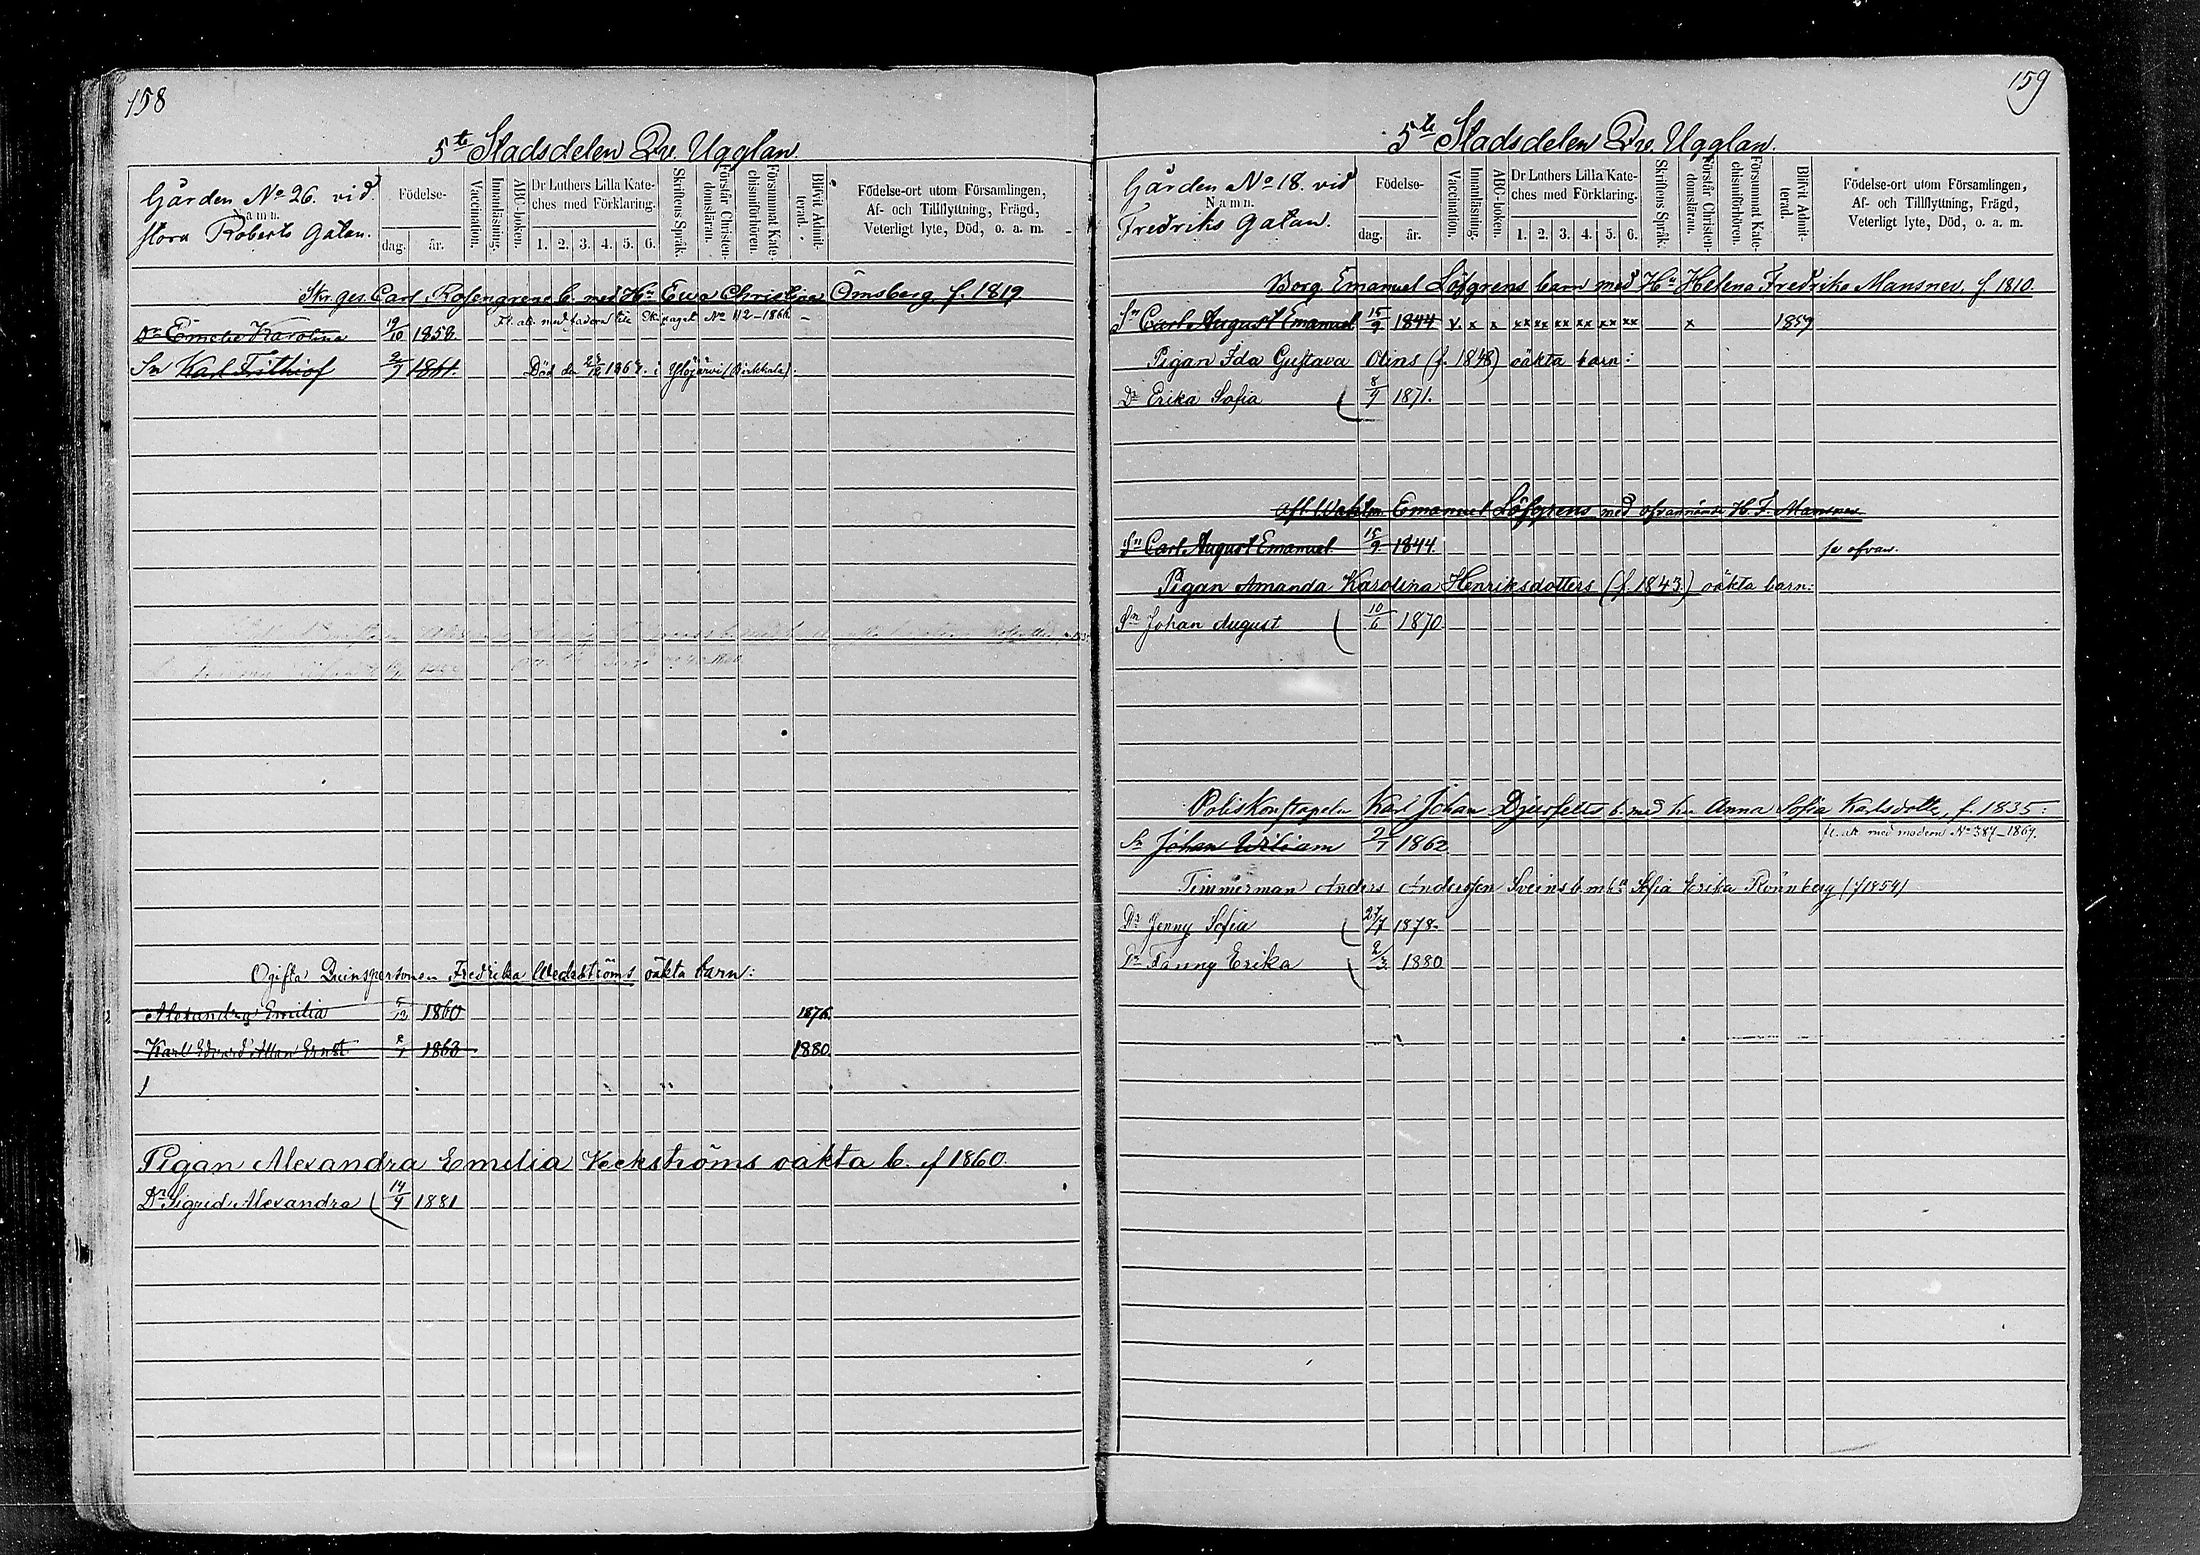 158
5te Stadsdelen Qv. Ugglan.
Gården No 26. vid
Namn.
stora Roberts gatan.
Födelse-
dag.
år.
Vaccination.
Innanläsning.
ABC-boken.
Dr Luthers Lilla Kate-
ches med Förklaring.
1. 2. 3. 4. 5. 6.
Skriftens Språk.
Förstår Christen-
domsläran.
Försummat Kate-
chismiförhören.
Blifvit Admit-
terad.
Födelse-ort utom Församlingen,
Af- och Tillflyttning, Frägd,
Veterligt lyte, Död, o. a. m.
Skr.ges. Carl Rosengrens b. med Hu Ewa Christina Ömsberg f. 1819
Dr Emelie Karolina 19/10 1858. Fl. att. med fadern till No 112-1866
Sn Karl Frithiof 2/7 1861. Död den i Ylöjärvi (Birkkala).
Ogifta Qvinspersonen Fredrika Weckströms oäkta barn:
Alexandra Emilia 5/12 1860 1876.
Karl Edvard Allan Ernst 1863 1880.
Pigan Alexandra Emilia Veckströms oäkta b. f 1860.
Dr Sigrid Alexandra 14/9 1881
159
5te Stadsdelen Qv. Ugglan.
Gården No 18. vid
Namn.
Fredriks gatan.
Födelse-
dag.
år.
Vaccination.
Innanläsning.
ABC-boken.
Dr Luthers Lilla Kate-
ches med Förklaring.
1. 2. 3. 4. 5. 6.
Skriftens Språk.
Förstår Christen-
domsläran.
Försummat Kate-
chismiförhören.
Blifvit Admit-
terad.
Födelse-ort utom Församlingen,
Af- och Tillflyttning, Frägd,
Veterligt lyte, Död, o. a. m.
Borg. Emanuel Löfgrens barn med Hu Helena Fredrika Mansner, f 1810.
Sn Carl August Emanuel 15/9 1844 v. x x xx xx xx xx xx xx x 1859
Pigan Ida Gustava Olins (f. 1848) oäkta barn:
Dr Erika Sofia 8/9 1871.
Emanuel Löfgrens med ofvannämde H. F. Mansner
Sn Carl August Emanuel 15/9 1844. se ofvan.
Pigan Amanda Karolina Henriksdotters (f. 1843.) oäkta barn:
Sn Johan August 10/6 1870
Poliskonstapeln Karl Johan Djerfelts b. med hu Anna Sofia Karlsdotter, f. 1835:
Sn Johan Wiliam 2/7 1862. fl. att. med modern No 387-1867.
Timmerman Anders Andersson Sveins b. m hu Sofia Erika Rönnberg (f 1854)
Dr Jenny Sofia 27/7 1878.
Dr Fanny Erika 2/3 1880